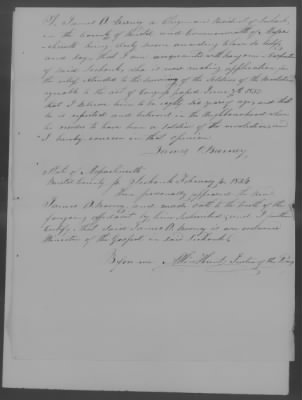 I, James O. Barney a Clergyman Resident of Seekonk
in the County of Bristol and Commonwealth of Massa
chusetts being duly sworn according to law do testify
and say, that I am acquainted with Comfort Carpenter
of said Seekonk, who is now making application for
the relief extended to the surviving of the soldiers of the Revolution
agreeable to the act of Congress passed June 7th 1832
that I believe him to be eighty six years of age; and that
he is reputed and believed in the Neighbourhood where
he resides to have been a soldier of the revolution and
I hereby concur in that opinion
James O. Barney
State of Massachusetts
Bristol County ss Seekonk February 4 1834
Then personally appeared the said
James O. Barney and made oath to the truth of the
foregoing affidavit by him subscribed; and I further
certify that said James O. Barney is an ordained
Minister of the Gospel in said Seekonk
Before me Justice of the Peace